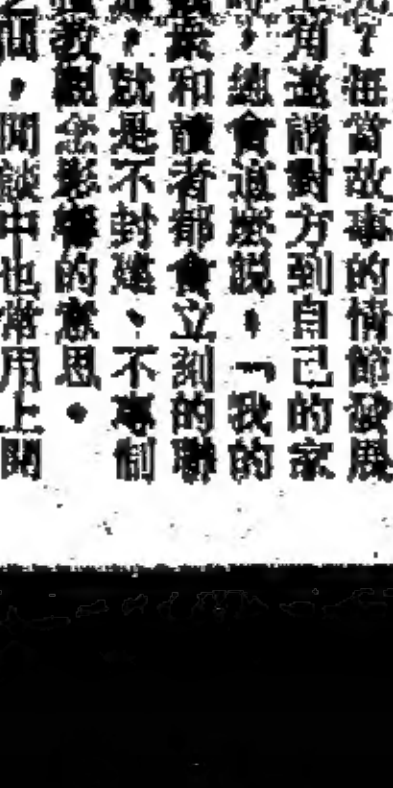 ？每當故事的情節發展
角邀請對方到自己的家
，總會這麼說，「我的
衆和讀者都會立刻的聯
，就是不封建、不專制
教觀念影響的意思。
間，閒談中也常用上開